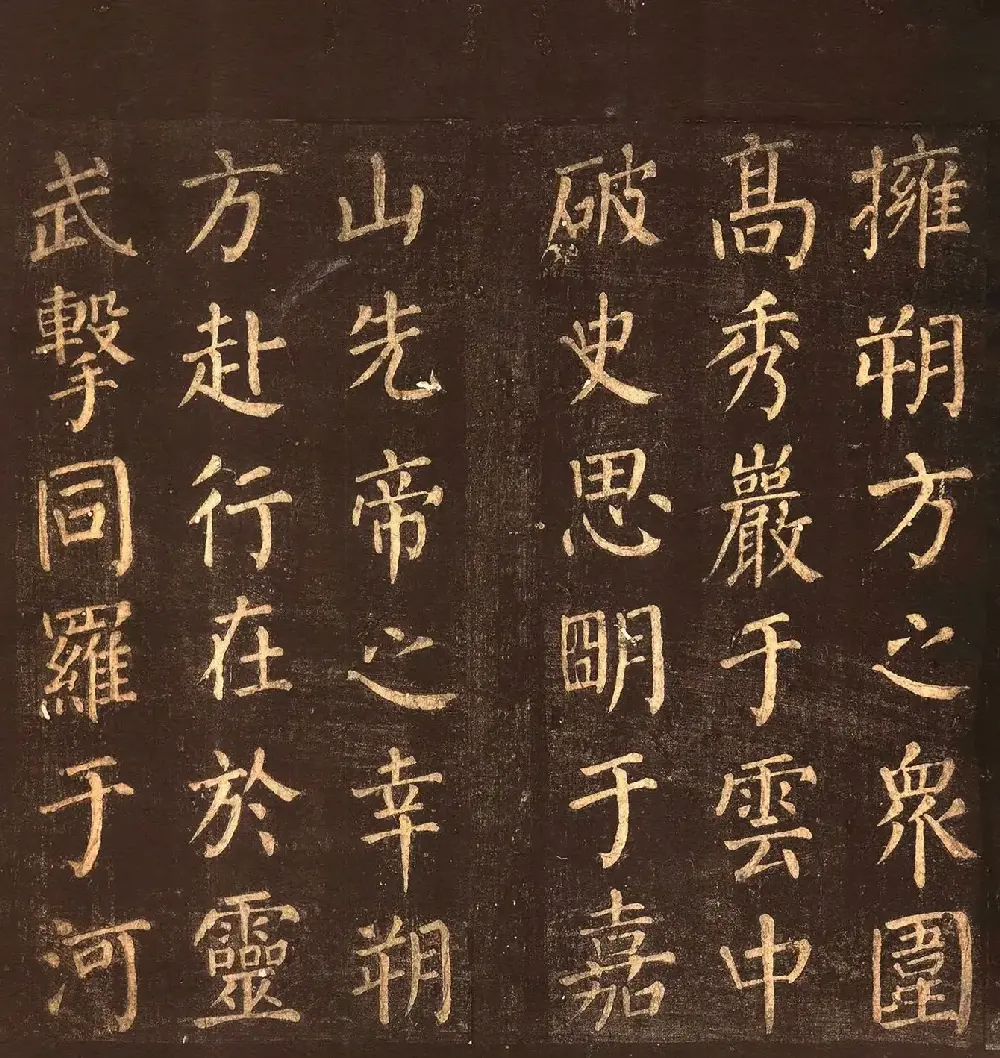 擁朔方之眾圍
髙秀巖于雲中
破史思明于嘉
山先帝之幸朔
方赴行在於靈
武擊同羅于河